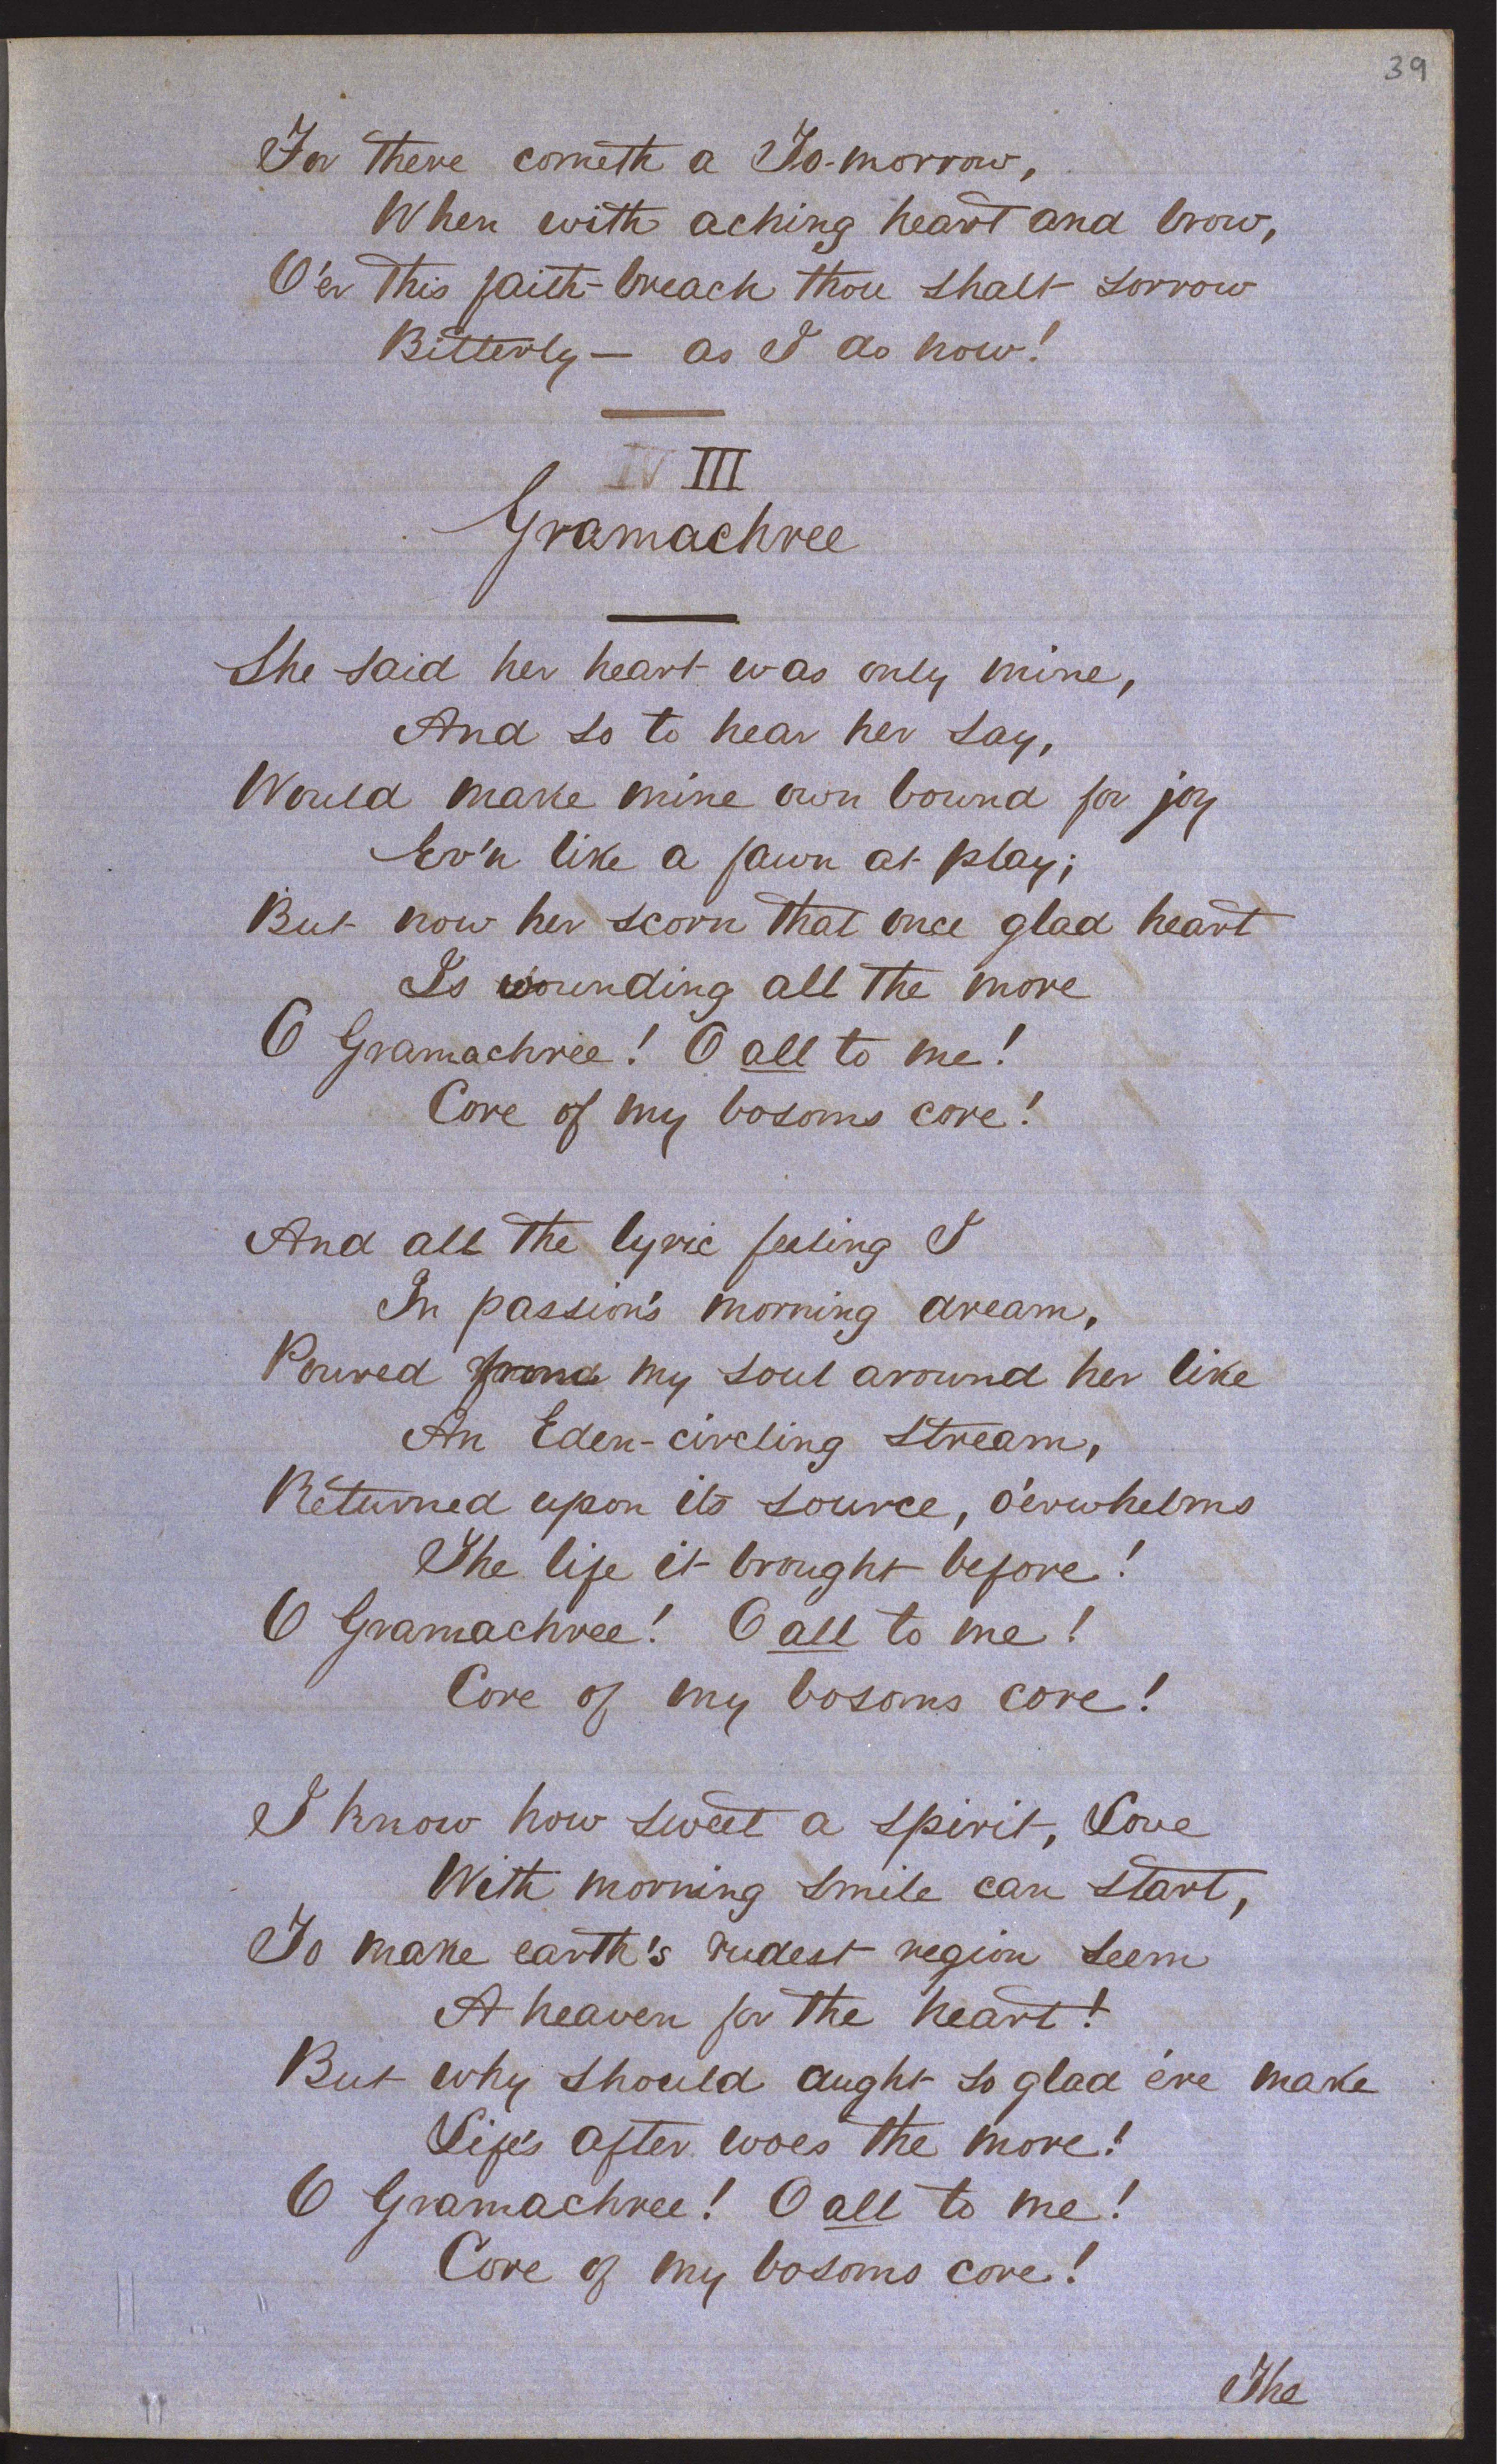 39
For there cometh a To-morrow,
When with aching heart and brow,
O'er this faith-breach thou shalt sorrow
Bitterly — as I do now!
IV III
Gramachree
She said her heart was only mine,
And so to hear her say,
Would make mine own bound for joy
Ev'n like a fawn at play;
But now her scorn that once glad heart
Is wounding all the more
O Gramachree! O all to me!
Core of my bosoms core!
And all the lyric feeling I
In passion's morning dream,
Poured from my soul around her like
An Eden-circling stream,
Returned upon its source, o'erwhelms
The life it brought before!
O Gramachree! O all to me!
Core of my bosoms core!
I know how sweet a spirit, Love
With morning smile can start,
To make earth's rudest region seem
A heaven for the heart!
But why should aught so glad e're make
Life's after woes the more!
O Gramachree! O all to me!
Core of my bosoms core!
The